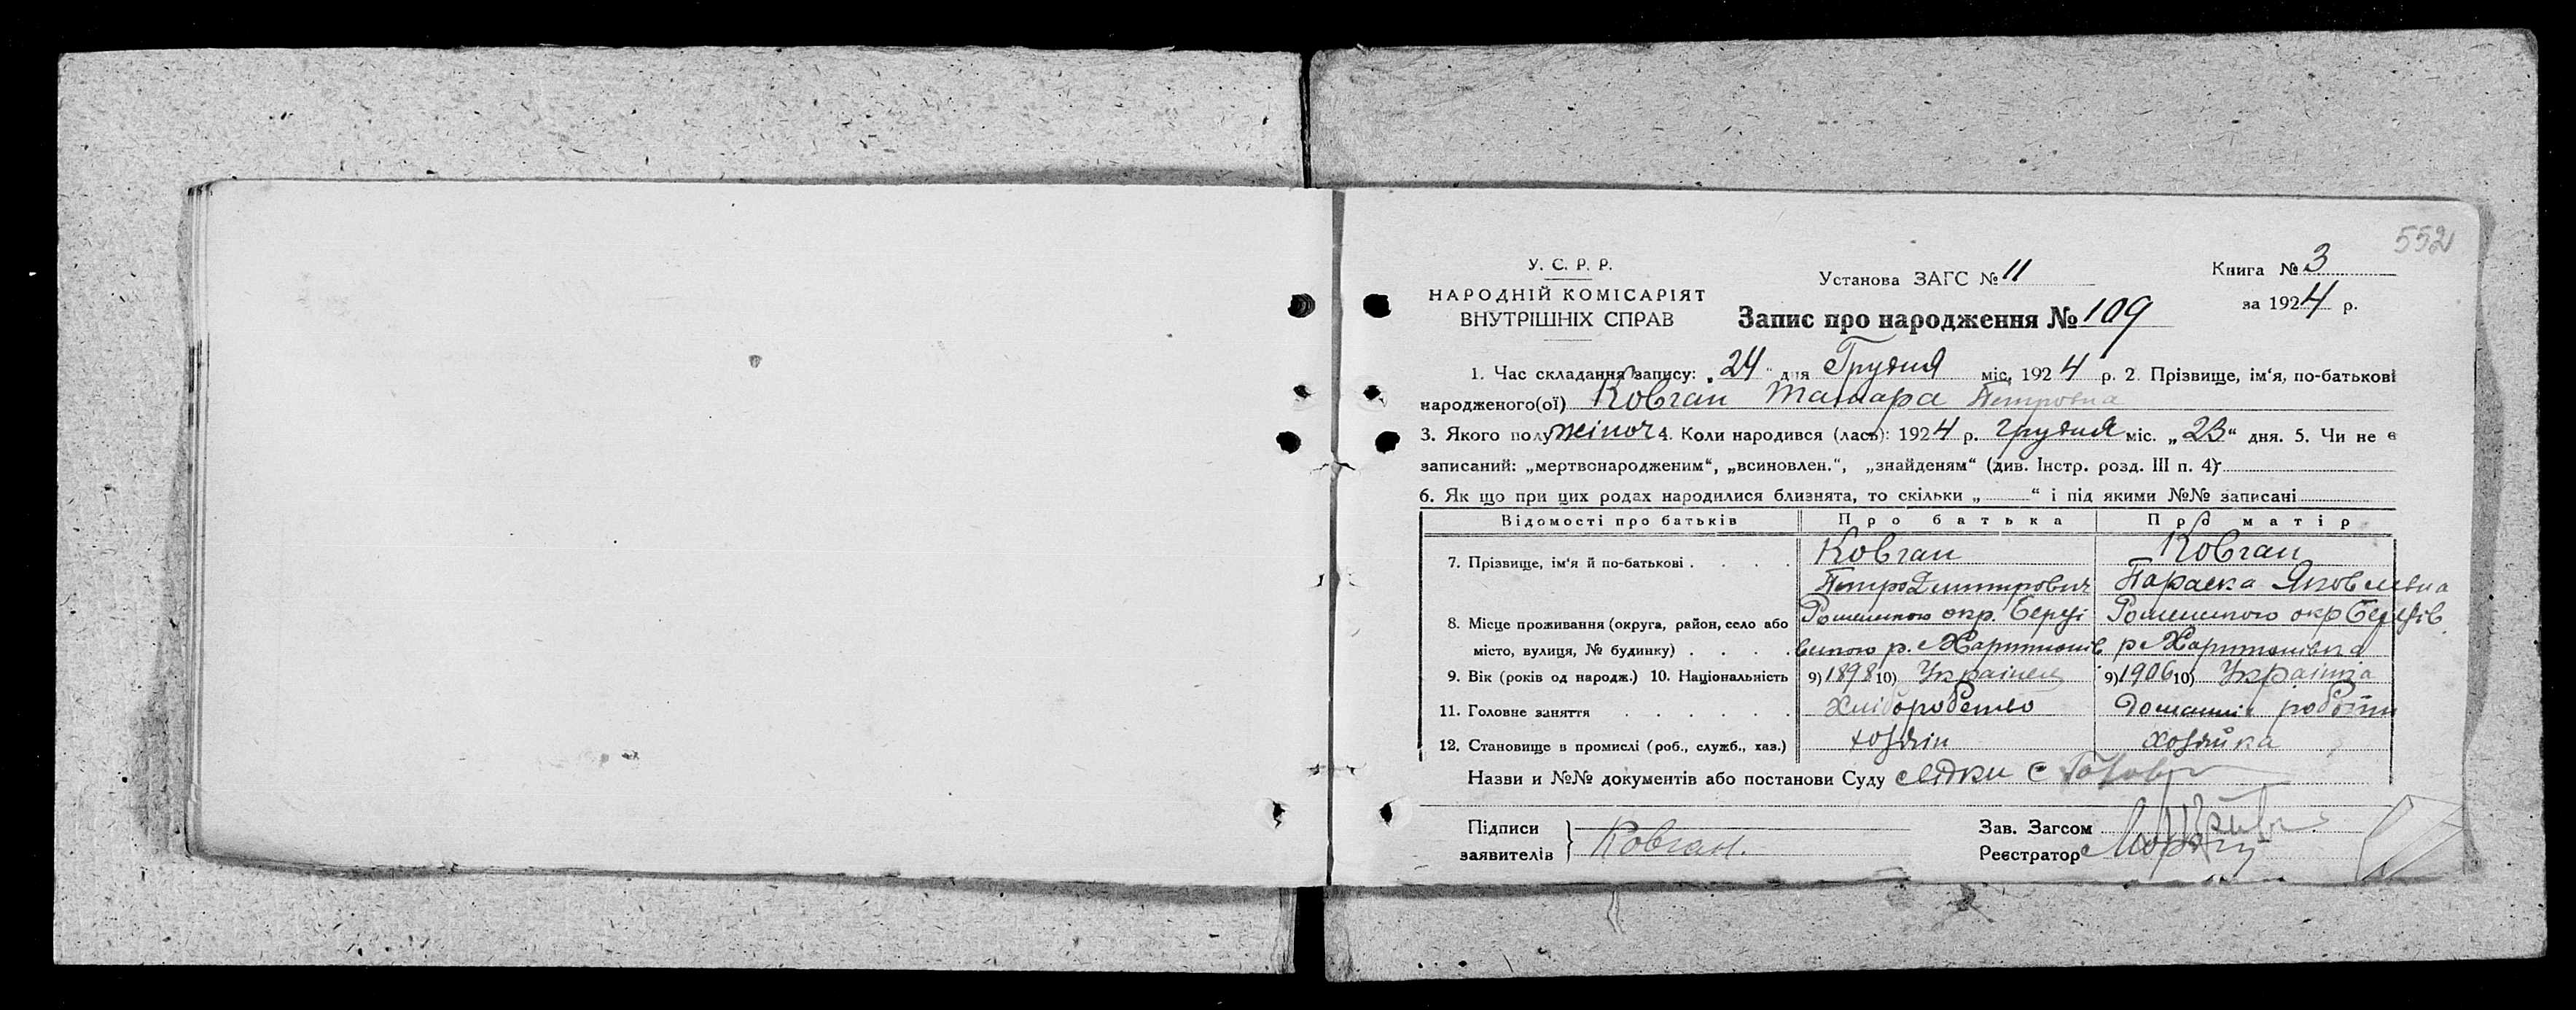 552
У. С. Р. Р.
НАРОДНІЙ КОМІСАРІЯТ
ВНУТРІШНІХ СПРАВ
Установа ЗАГС № 11
Книга № 3
за 1924 р.
Запис про народження № 109
1. Час складання запису: „24" дня Грудня міс, 1924 р. 2. Прізвище, ім'я, по-батькові
народженого(ої) Ковган Тамара Петровна
3. Якого полу жіноч 4. Коли народився (лась): 1924 р. грудня міс. „23" дня. 5. Чи не є
записаний: „мертвонародженим", „всиновлен.", „знайденям" (див. Інстр. розд. III п. 4)
6. Як що при цих родах народилися близнята, то скільки „ " і під якими №№ записані
Відомості про батьків Про батька Про матір
7. Прізвище, ім'я й по-батькові . . . . Ковган Ковган
Петро Дмитрович Параска Яковлевна
8. Місце проживання (округа, район, село або Роменською окр. Берез Роменською окр Березів
місто, вулиця, № будинку) . . . . р. р
9. Вік (років од народж.) 10. Національність 9) 1898 10) Украінец 9) 1906 10) Украінка
11. Головне заняття . . . . . . Хліборобство Домашні роботи
12. Становище в промислі (роб., служб., хаз.) хозяін хозяйка
Назви и №№ документів або постанови Суду
Підписи
заявителів } Ковган.
Зав. Загсом
Реєстратор